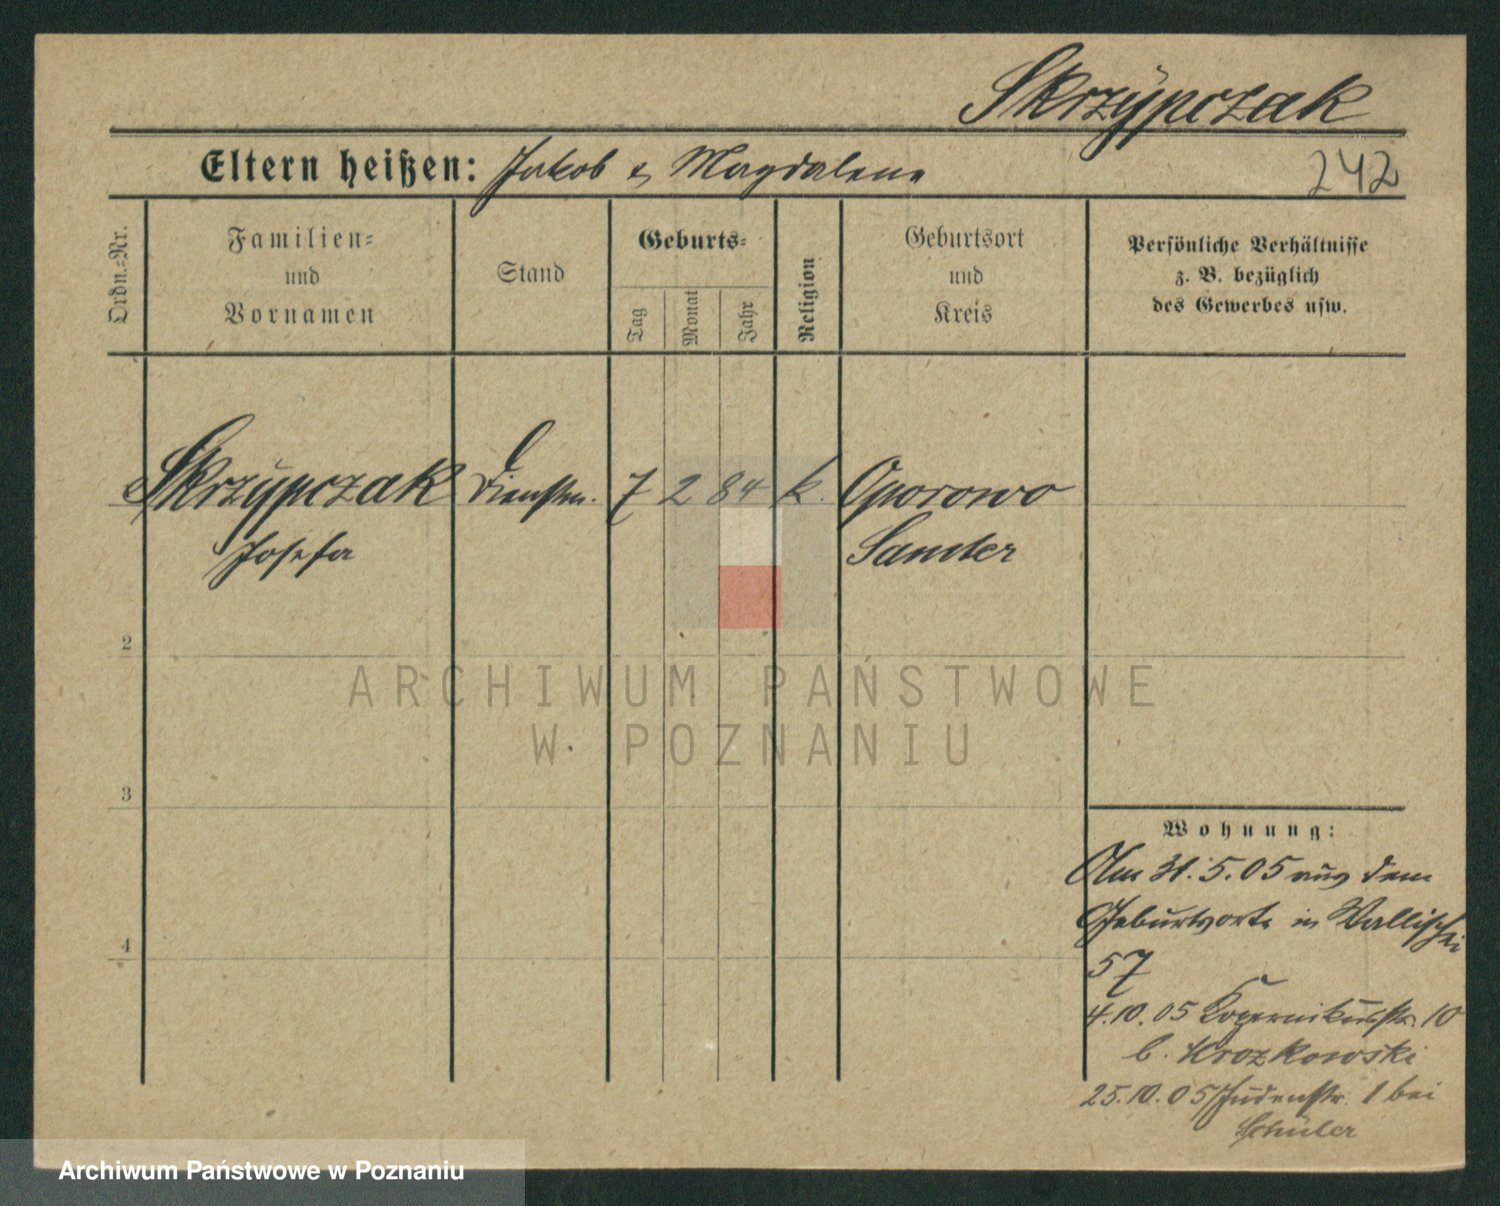 Skrzÿpczak
Eltern heißen: Jakob & Magdalene
242
Ordn.=Nr.
Familien=
und
Vornamen
Stand
Geburts=
Tag
Monat
Jahr
Religion
Geburtsort
und
Kreis
Persönliche Verhältnisse
z. B. bezüglich
des Gewerbes usw.
Skrzÿpczak Dienstm. 7 2 84 k. Oporowo
Josefa Samter
2
3
4
Wohnung:
Am 31.5.05 aus dem
Geburtsorte in Wallischei
57
4.10.05 Kopernikusstr. 10
b. Krozkowski
25.10.05 Judenstr. 1 bei
Schüler
ARCHIWUM PAŃSTWOWE
W POZNANIU
Archiwum Państwowe w Poznaniu